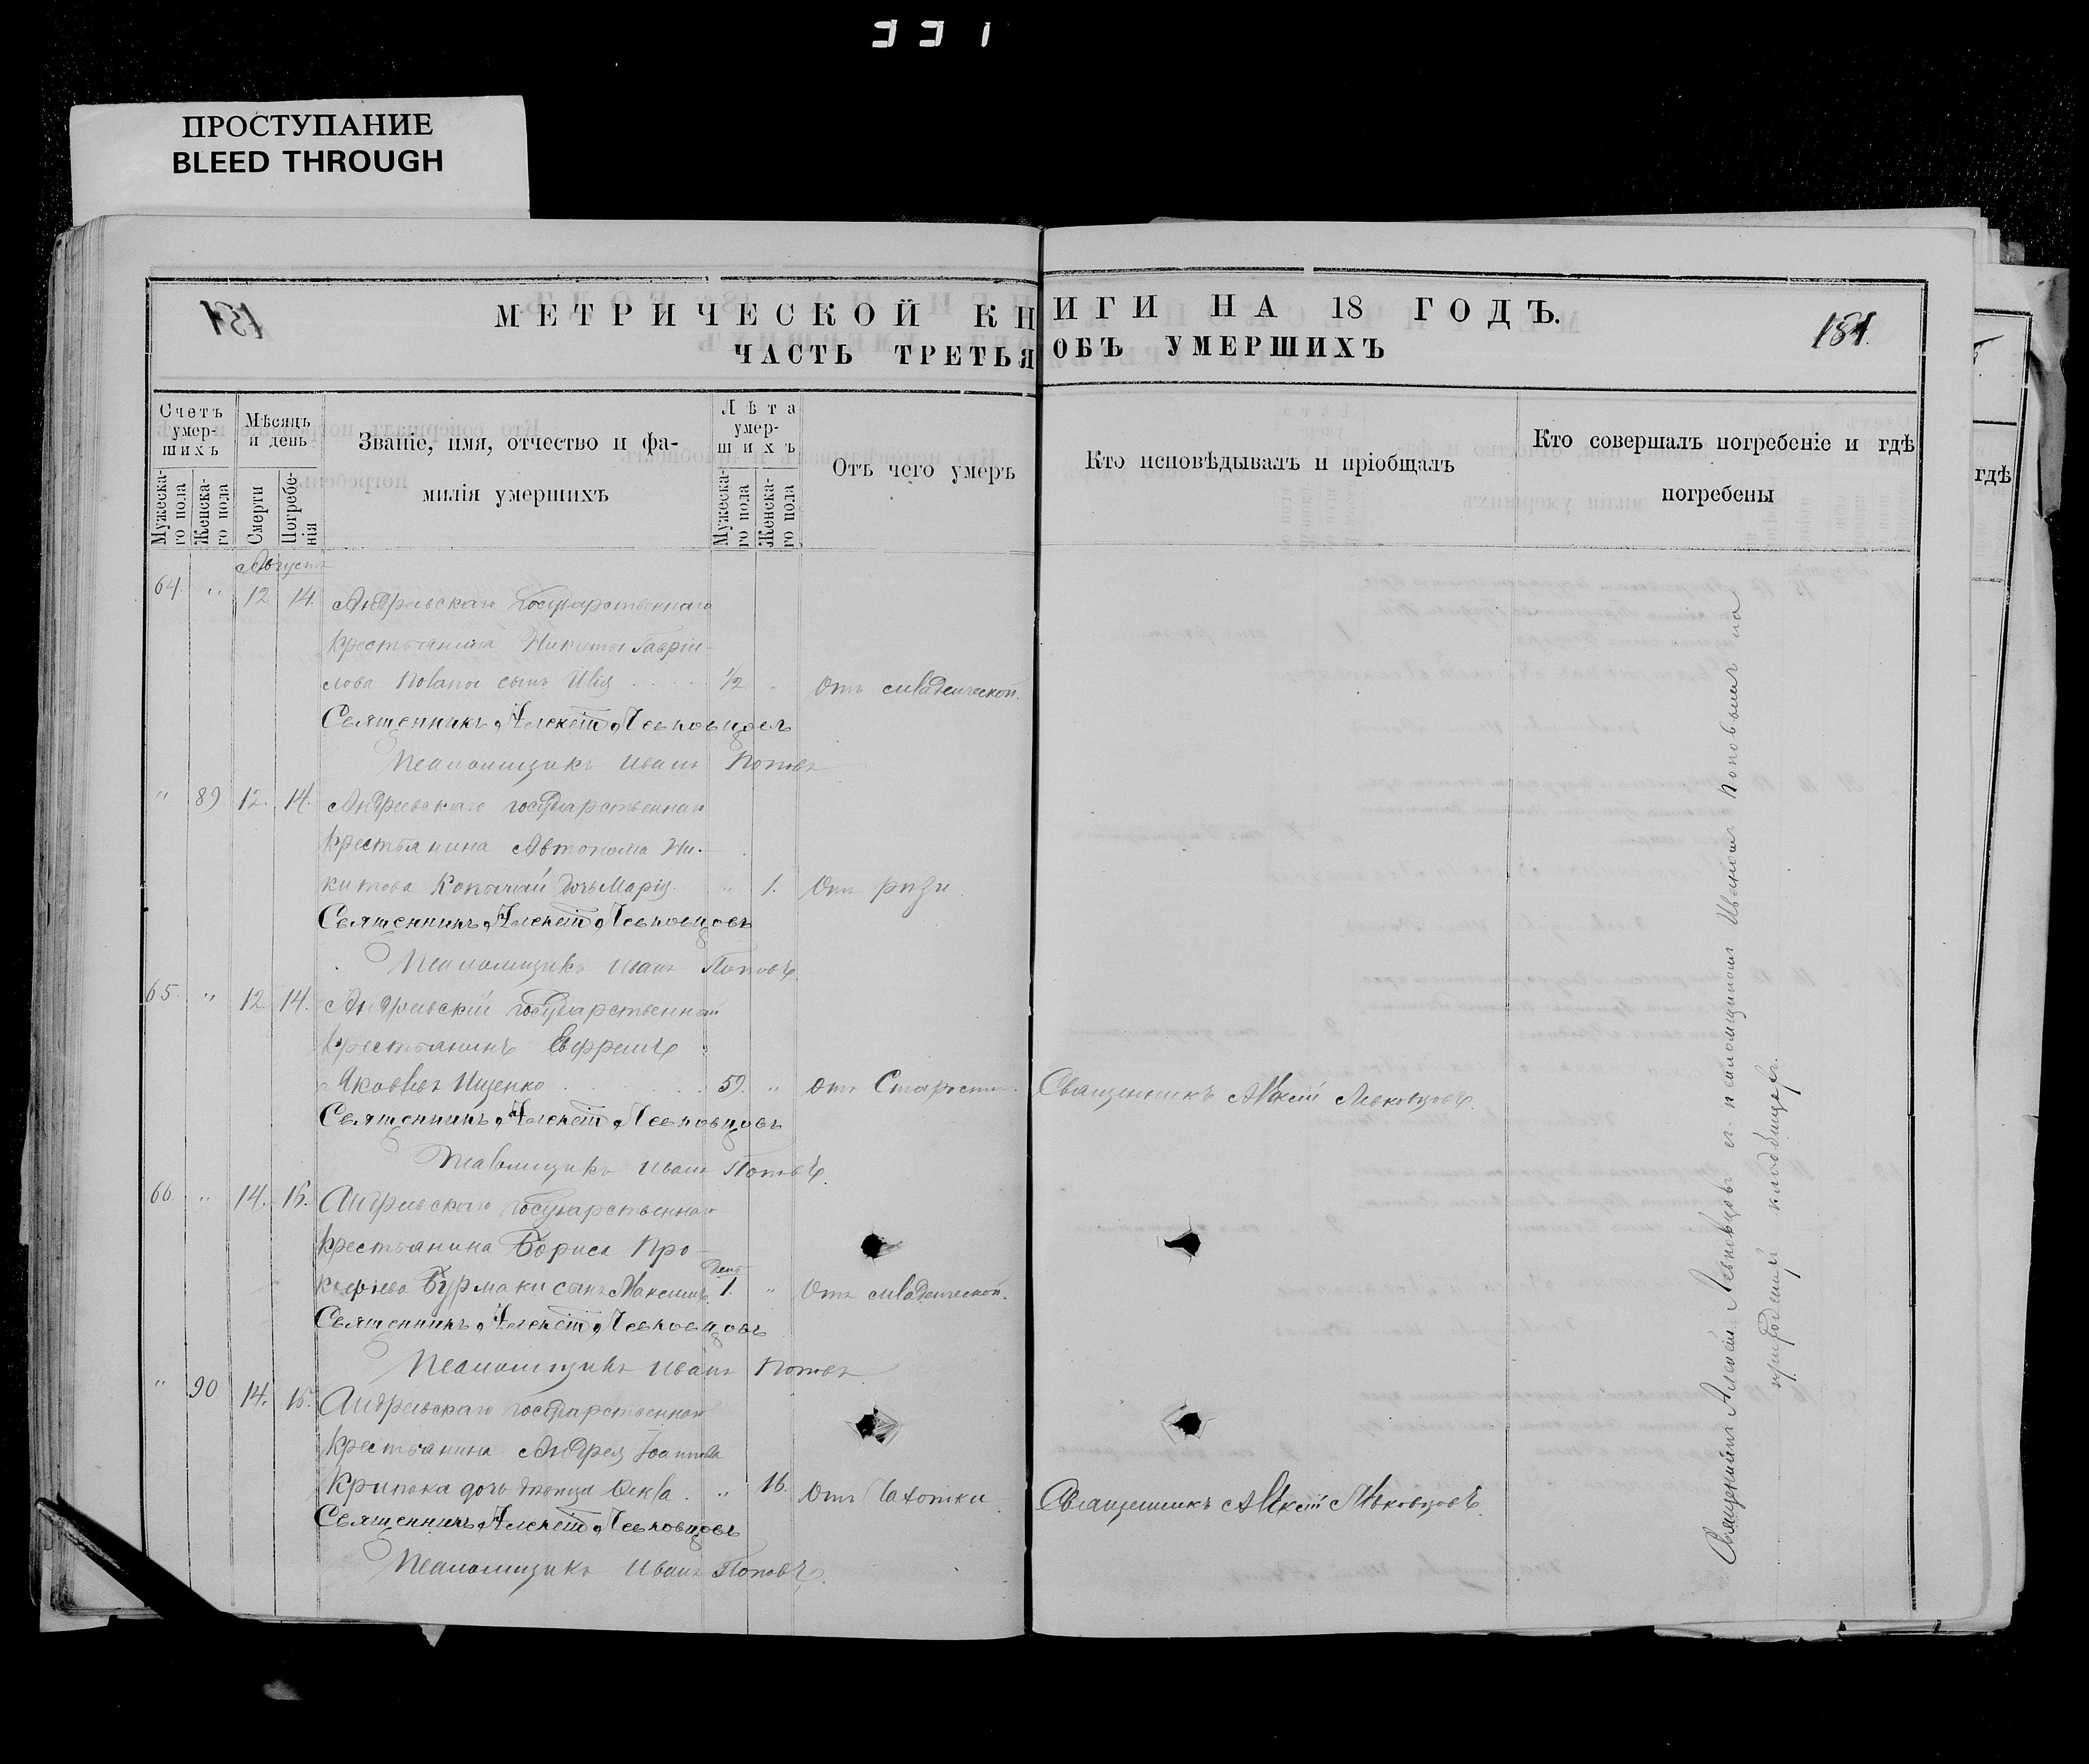 331
ПРОСТУПАНИЕ
BLEED THROUGH
МЕТРИЧЕСКОЙ КНИГИ НА 18 ГОДЪ.
181.
ЧАСТЬ ТРЕТЬЯ ОБЪ УМЕРШИХЪ
Счетъ умер-шихъ
Мужеска-го пола
Женска-го пола
Мѣсяцъ и день
Смерти
Погребе-нія
Званіе, имя, отчество и фа-
милія умершихъ
Лѣта умер-шихъ
Мужеска-го пола
Женска-го пола
Отъ чего умеръ
Кто исповѣдывалъ и пріобщалъ
Кто совершалъ погребеніе и гдѣ
погребены
Августъ
64. " 12 14. Андреевскаго Государственнаго
крестьянина Никиты Гаврiи-
лова сынъ Илія 1/2 " Отъ младенческой.
Священникъ Алексѣй Левковцовъ
Псаломщикъ Иванъ Поповъ
" 89 12. 14. Андреевскаго государственнаго
крестьянина Автонома Ни-
китова дочь Марія. " 1. Отъ
Священникъ Алексѣй Левковцовъ
Псаломщикъ Иванъ Поповъ
65. " 12. 14. Андреевскій государственный
крестьянинъ Ефремъ
Яковлевъ Ищенко 59. " Отъ Старости. Священникъ Алексѣй Левковцовъ.
Священникъ Алексѣй Левковцовъ
Псаломщикъ Иванъ Поповъ.
66. " 14. 15. Андреевскаго государственнаго
крестьянина Бориса Про-
кофіева Бурмаки сынъ Максимъ. День 1. " Отъ младенческой.
Священникъ Алексѣй Левковцовъ
Псаломщикъ Иванъ Поповъ
" 90 14. 15. Андреевскаго государственнаго
крестьянина Андрея Іоаннова
дочь " 16. Отъ Чахотки Священникъ Алексѣй Левковцовъ.
Священникъ Алексѣй Левковцовъ
Псаломщикъ Иванъ Поповъ.
Священникъ Алексѣй Левковцовъ съ псаломщикомъ Иваномъ Поповымъ на
приходскомъ кладбищѣ.
гдѣ